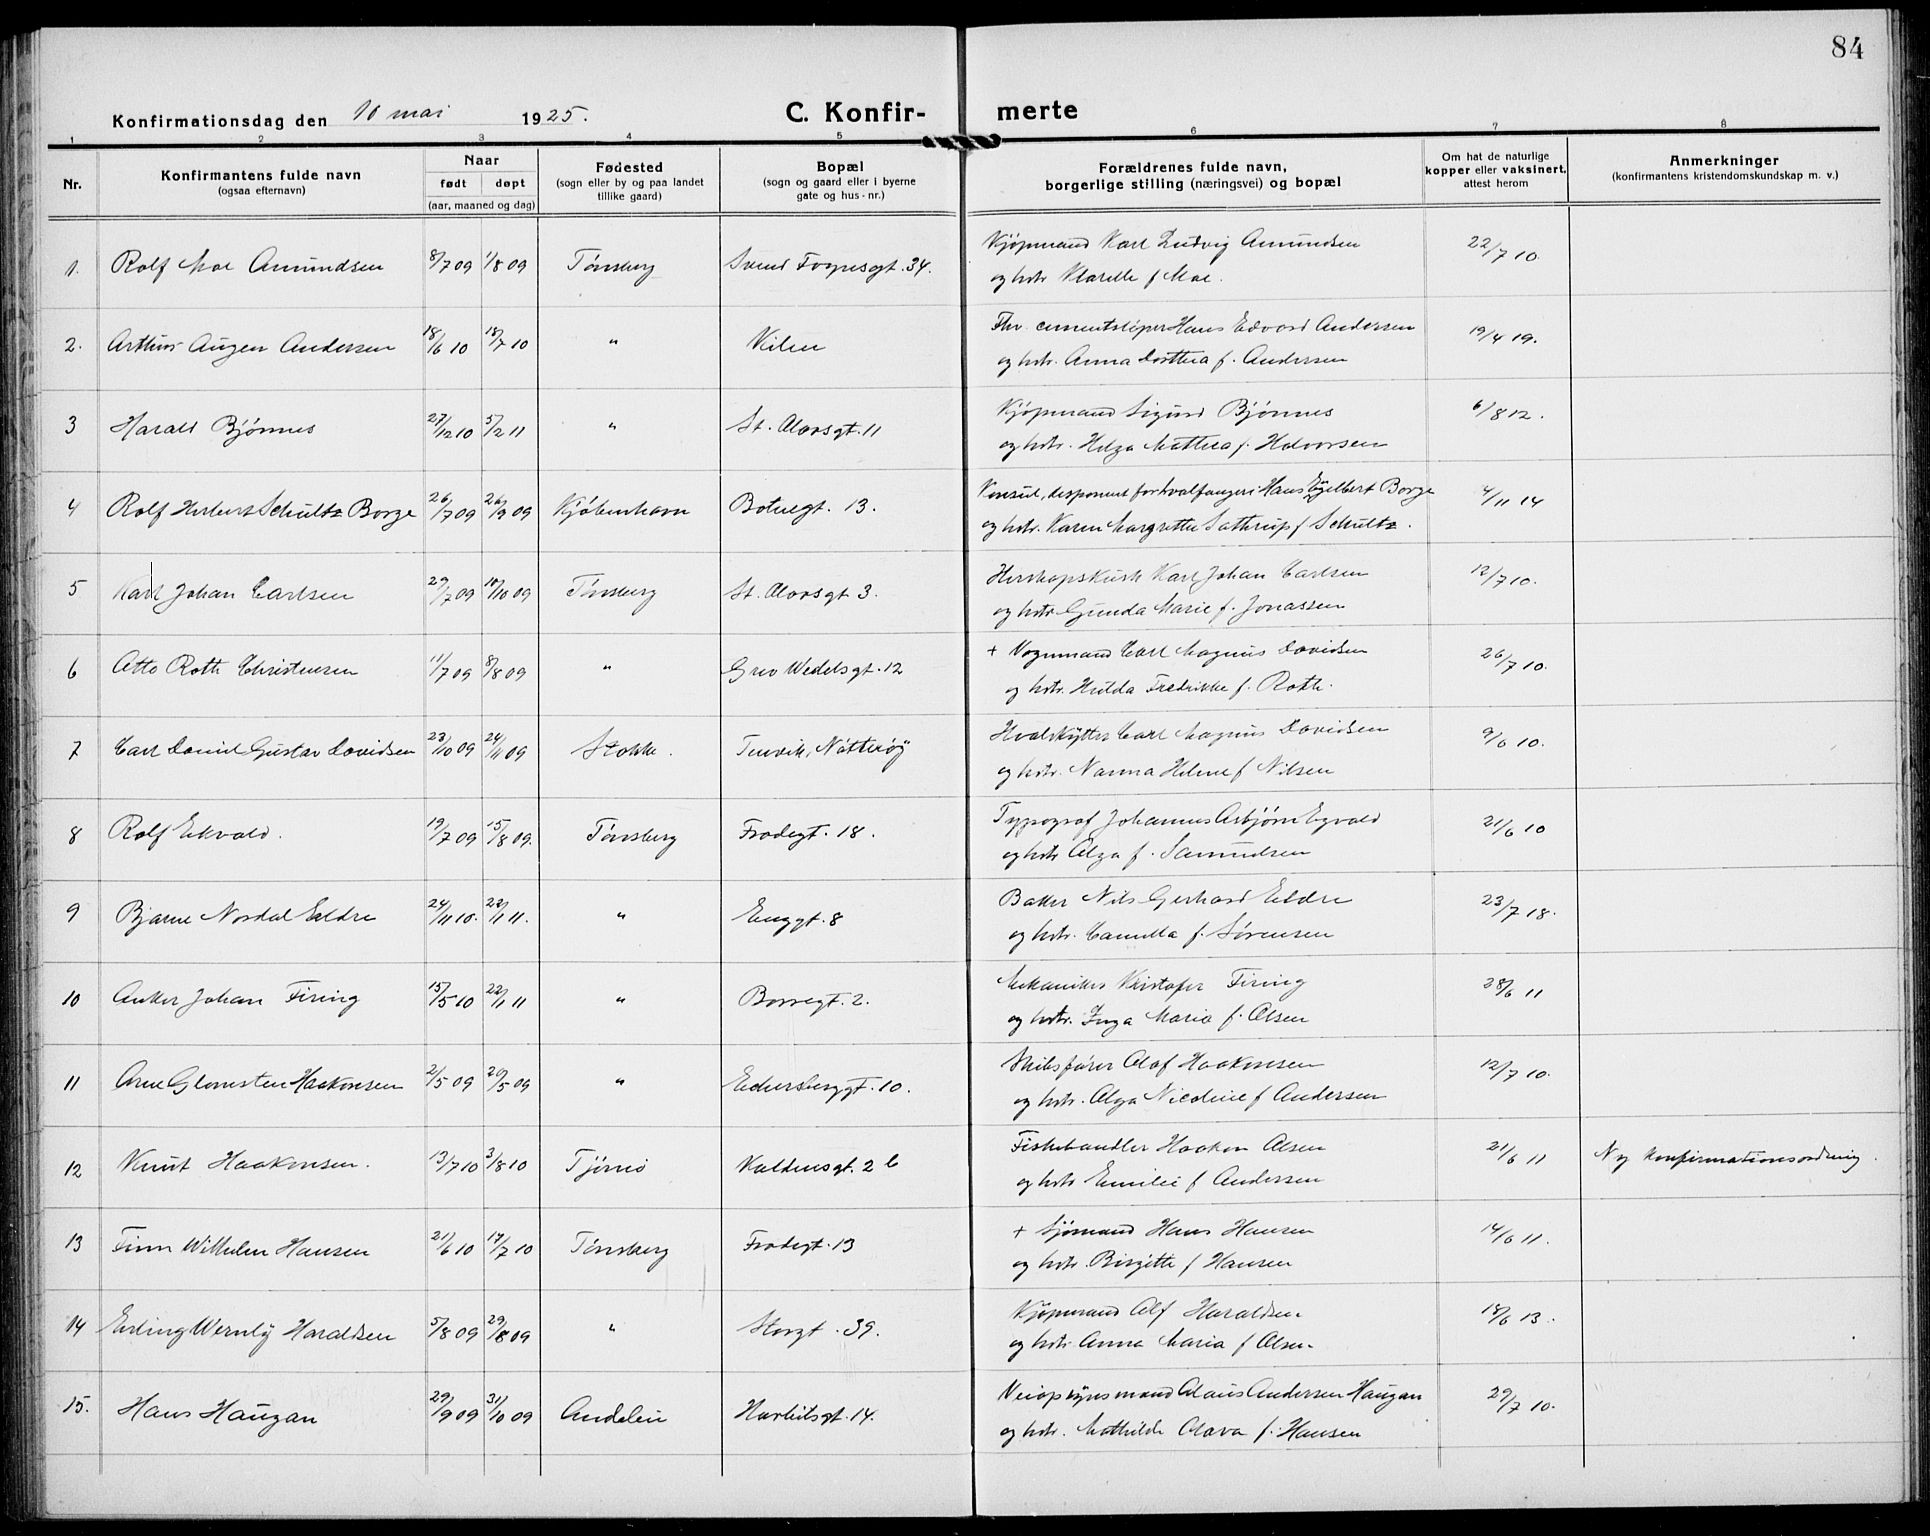 84
Konfirmationsdag den 10 mai 1925.
C. Konfir- merte
1 2 3 4 5 6 7 8
Nr.
Konfirmantens fulde navn
(ogsaa efternavn)
Naar
født døpt
(aar, maaned og dag)
Fødested
(sogn eller by og paa landet
tillike gaard)
Bopæl
(sogn og gaard eller i byerne
gate og hus-nr.)
Forældrenes fulde navn,
borgerlige stilling (næringsvei) og bopæl
Om hat de naturlige
kopper eller vaksinert,
attest herom
Anmerkninger
(konfirmantens kristendomskundskap m. v.)
Kjøpmand Karl Ludvig Amundsen
1. Rolf Moe Amundsen 8/7 09 1/8 09 Tønsberg Svend Foynsgt. 34. 22/7 10.
og hstr. f. Moe.
Fhv. cementstøper Hans Edvard Andersen
2. Arthur Augen Andersen 18/6 10 18/7 10 " Kilen 19/4 19.
og hstr. Anna Dorthea f. Andersen
Kjøpmand Sigurd Bjønnes
3 Harald Bjønnes 27/12 10 5/2 11 " St. Olavsgt. 11 6/8 12.
og hstr. Helga Mathea f. Halvorsen
Konsul, disponent for hvalfangeri Hans Engelbert Borge
4 Rolf Herbert Schultz Borge 26/7 09 26/9 09 Kjøbenhavn Botnegt. 13. 4/11 14
og hstr. Karen Margrethe Sathrup f. Schultz.
Herskapskusk Karl Johan Carlsen
5 Karl Johan Carlsen 29/7 09 10/10 09 Tønsberg St. Olavsgt 3. 12/7 10.
og hstr. Gunda Marie f. Jonassen
+ Vognmand Carl Magnus Davidsen
6 Otto Roth Christensen 11/7 09 8/8 09 " Grev Wedelsgt. 12 26/7 10.
og hstr. Hulda Fredrikke f. Roth.
Hvalskytter Carl Magnus Davidsen
7 Carl Daniel Gustav Davidsen 23/10 09 24/11 09 Stokke. Tenvik, Nøtterøy 9/6 10.
og hstr. Nanna Helene f. Nilsen
Typograf Johannes Asbjørn Egvald
8 Rolf Ekvald. 19/7 09 15/8 09. Tønsberg Frodegt. 18. 21/6 10
og hstr. Olga f. Samuelsen
Baker Nils Gerhard Eldre
9 Bjarne Nordal Eldre 24/11 10. 22/1 11. " Enggt. 8 23/7 18.
og hstr. Camilla f. Sørensen
Mekaniker Kristofer Firing
10 Anker Johan Firing 15/5 10 22/1 11 " Borregt. 2. 28/6 11
og hstr. Inga Maria f. Olsen
Skibsfører Olaf Haakonsen
11 Arne Glomsten Haakonsen 2/5 09 20/5 09 " 10. 12/7 10.
og hstr. Olga Nicoline f. Andersen
Fiskehandler Haakon Olsen
12 Knut Haakonsen. 13/7 10 3/8 10 Tjømø Kaldnesgt. 2 b 21/6 11 Ny konfirmationsordning.
og hstr. Emilie f. Andersen
+ Sjømand Hans Hansen
13 Finn Wilhelm Hansen 21/6 10 17/7 10 Tønsberg Frodegt. 13 14/6 11.
og hstr. Birgitte f. Hansen
Kjøpmand Alf Haraldsen
14 Erling Wernly Haraldsen 5/8 09 29/8 09 " Storgt. 39. 18/6 13.
og hstr. Anna Maria f. Olsen
Veiopsynsmand Olaus Andersen Haugan
15. Hans Haugan 29/9 09 31/10 09 Andebu Harbitsgt. 14. 29/7 10.
og hstr. Mathilde Olava f. Hansen